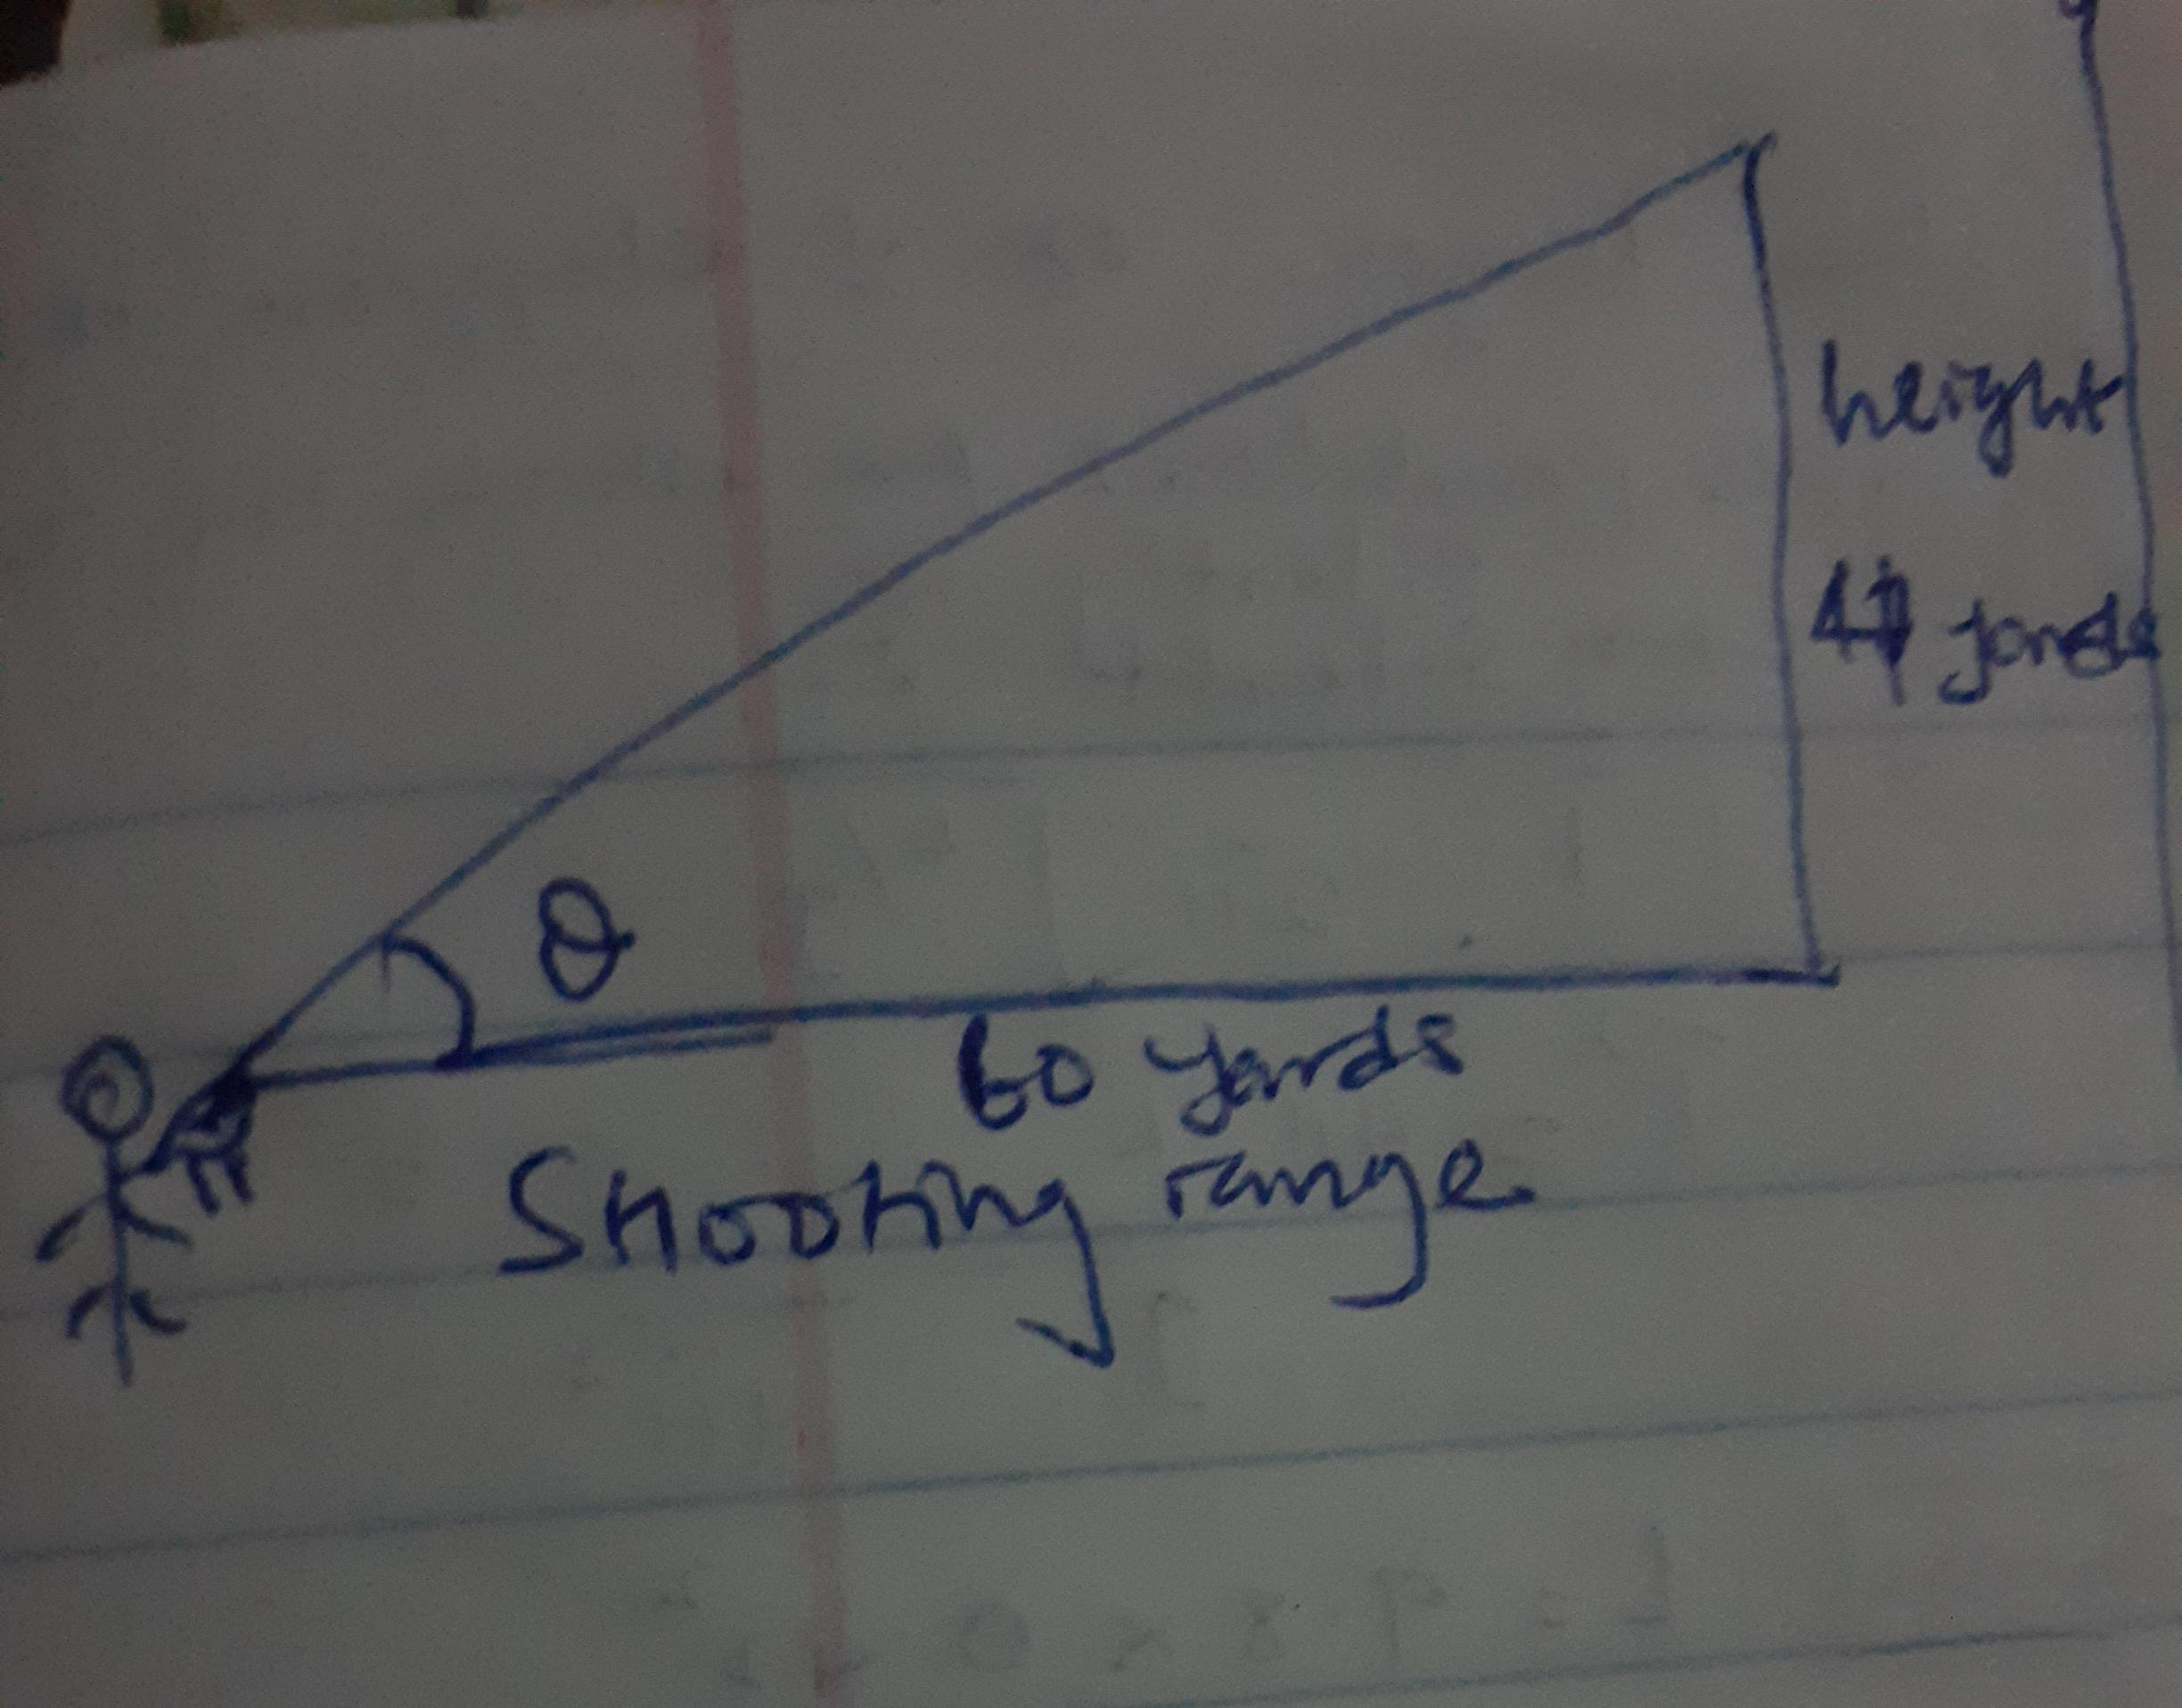 height
yards
θ
60 yards
Shooting range